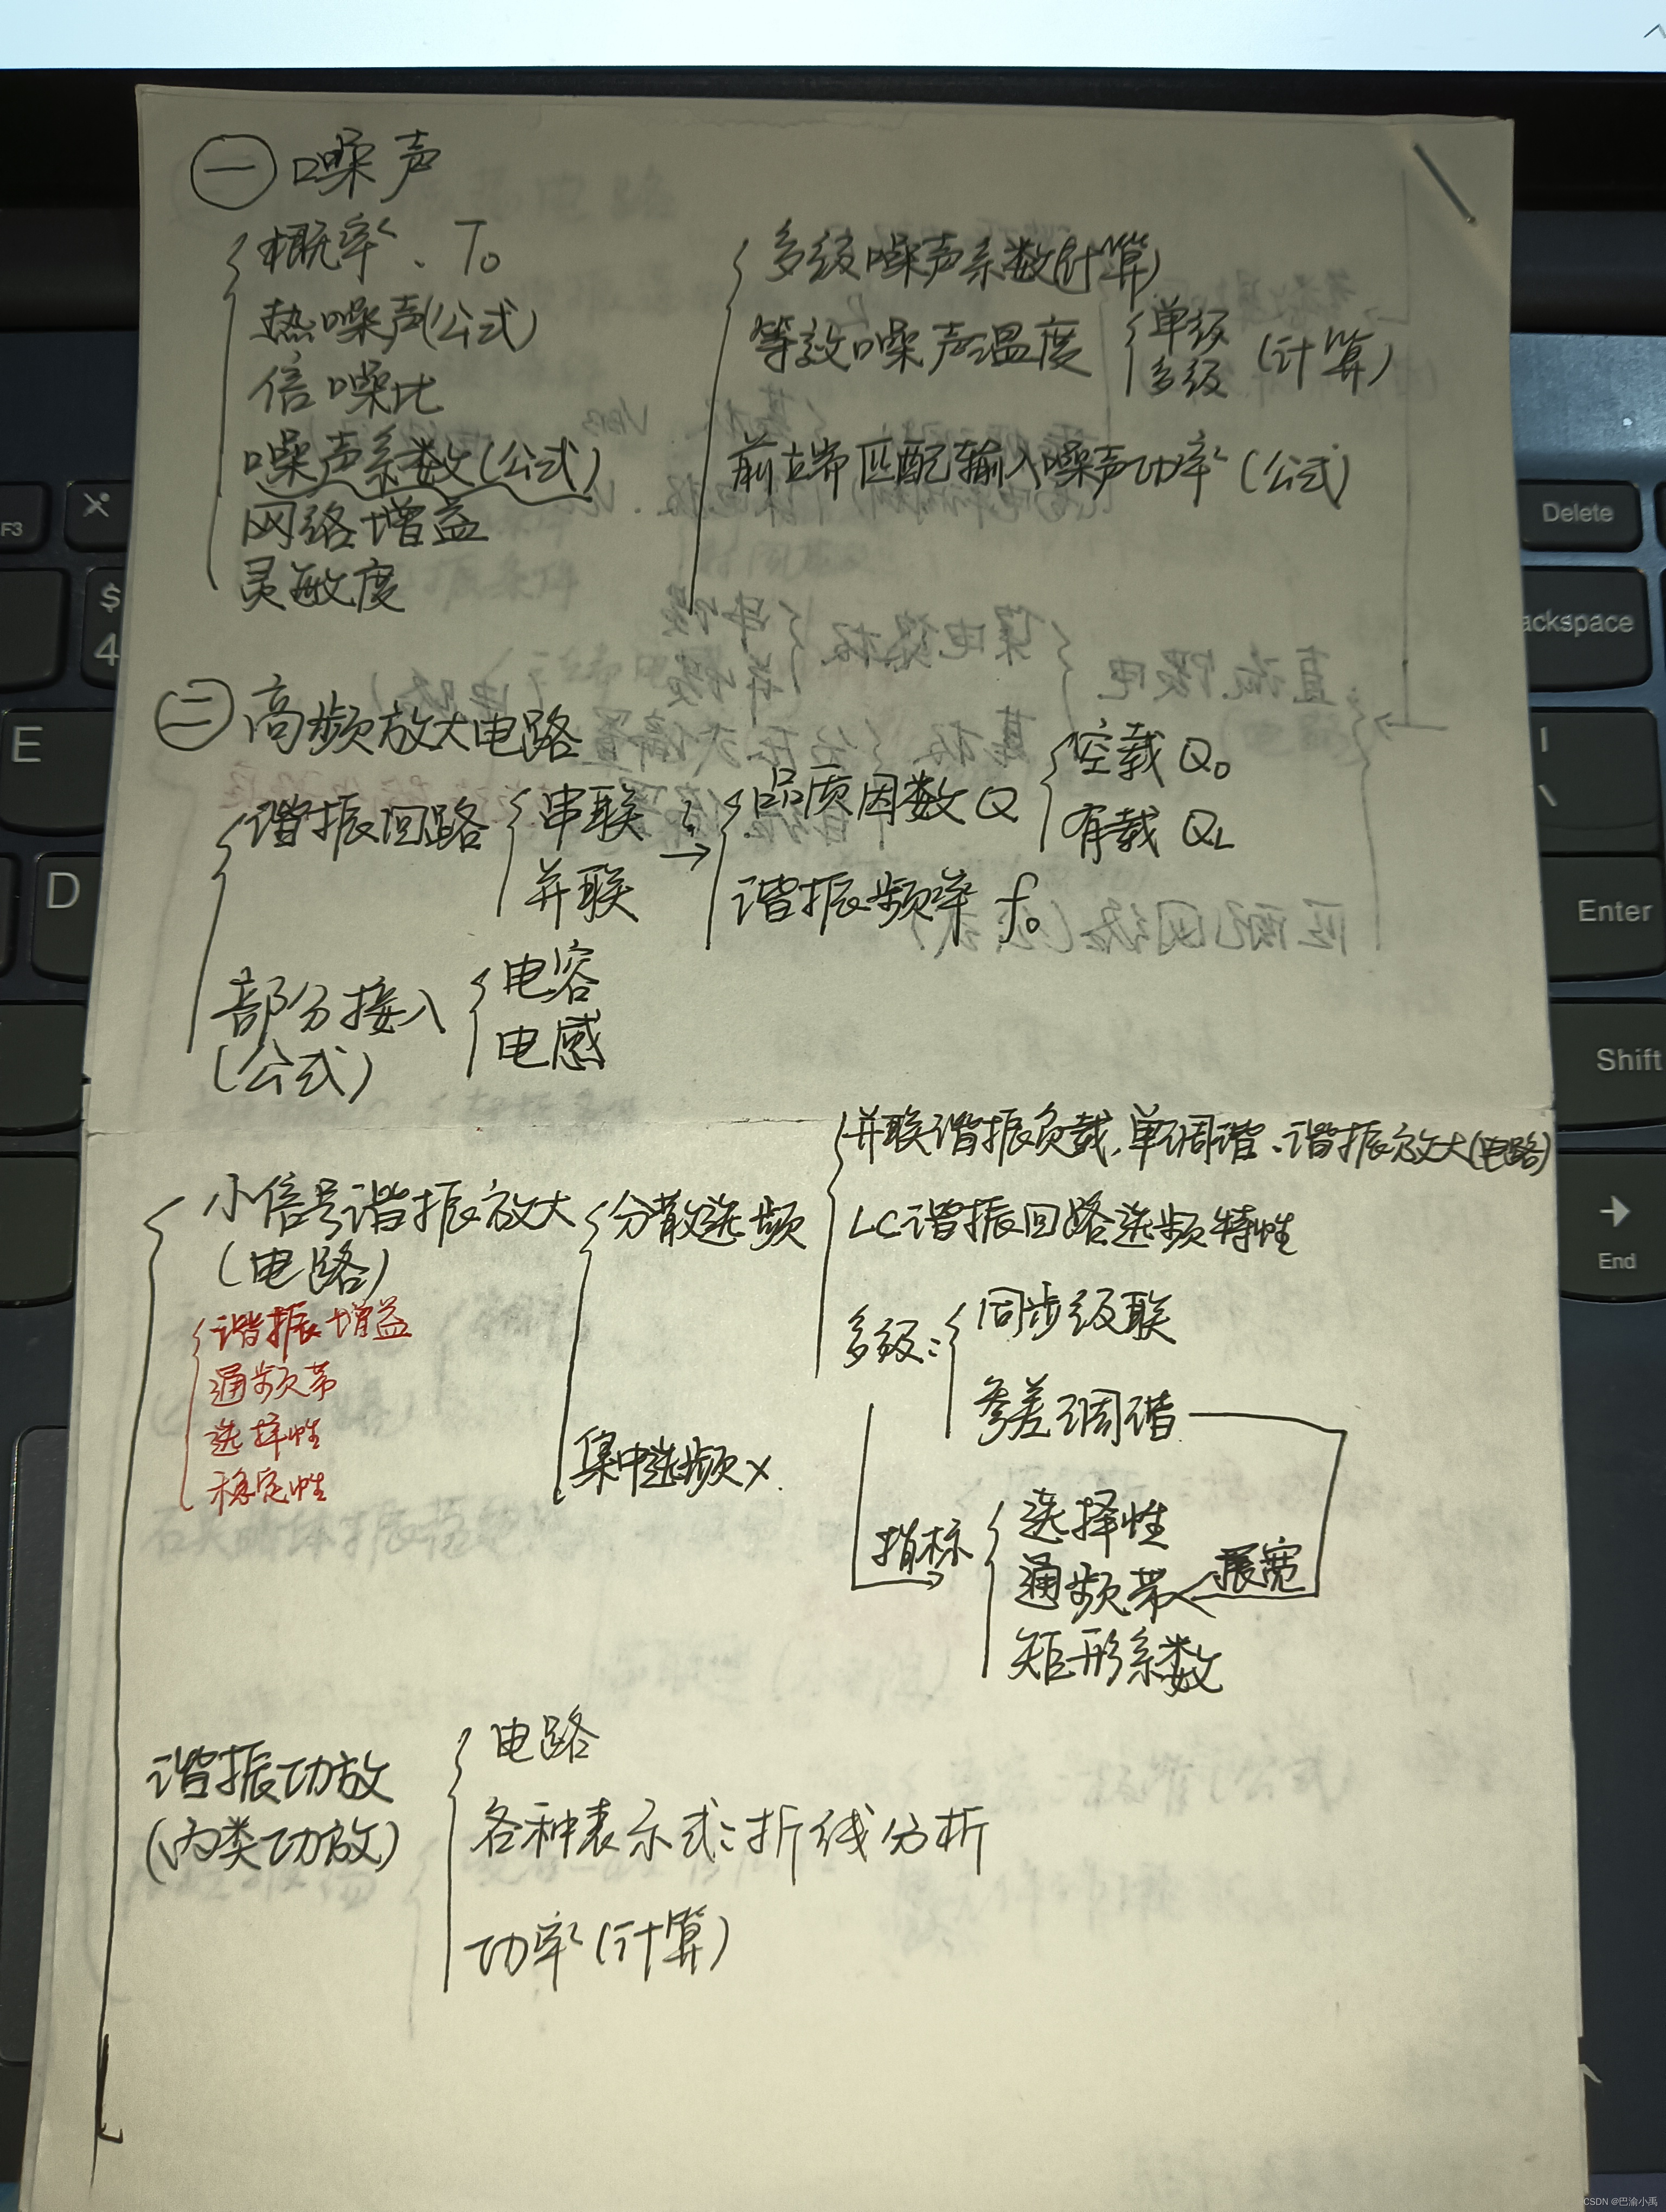 一 噪声
概率、T₀
热噪声(公式)
信噪比
噪声系数(公式)
网络增益
灵敏度
多级噪声系数(计算)
等效噪声温度 单级 多级 (计算)
前端匹配输入噪声功率(公式)
二 高频放大电路
谐振回路 串联 并联 → 品质因数Q 空载 Q₀ 有载 QL
谐振频率 f₀
部分接入 电容 电感
(公式)
小信号谐振放大
(电路)
谐振增益
通频带
选择性
稳定性
分散选频
并联谐振负载,单调谐、谐振放大(电路)
LC谐振回路选频特性
多级: 同步级联
参差调谐
指标 选择性
通频带 展宽
矩形系数
集中选频×
谐振功放
(丙类功放)
电路
各种表示式:折线分析
功率(计算)
F3
$
4
E
D
Delete
ackspace
\
Enter
Shift
→
End
CSDN @巴渝小禹